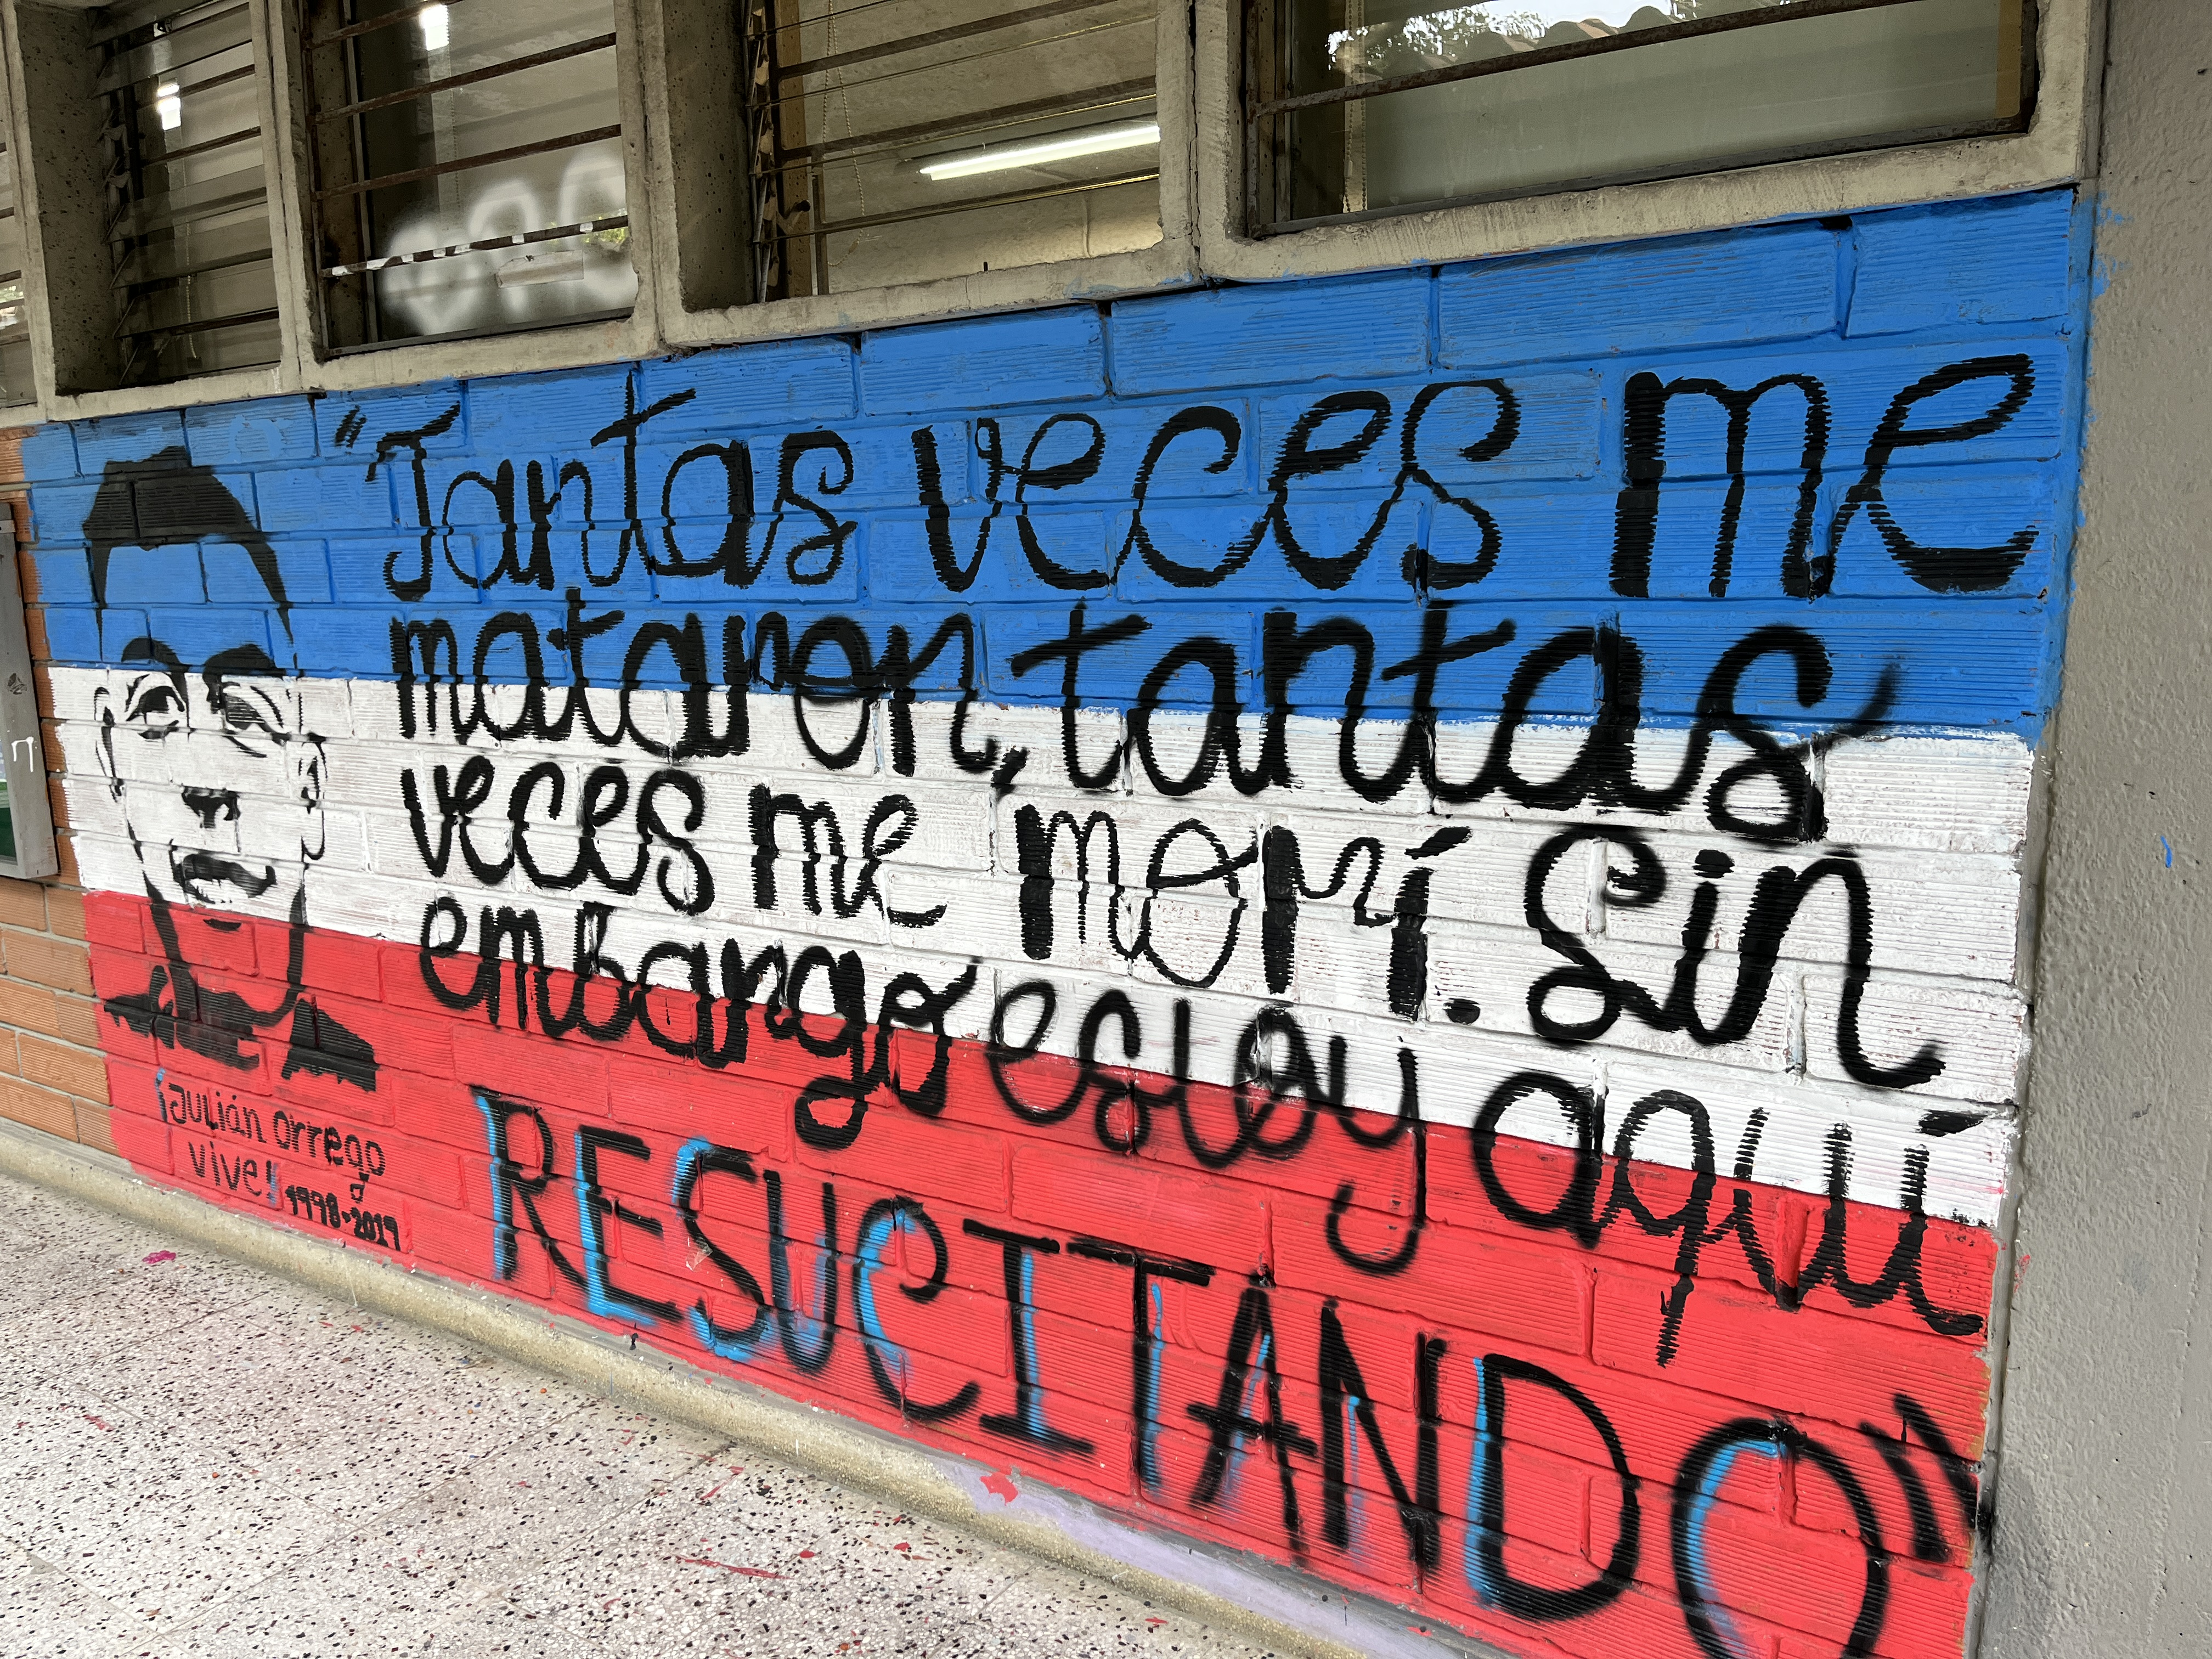 "Tantas veces me
mataron, tantas
veces me morí. Sin
embargo estoy aquí
RESUCITANDO"
¡Julián Orrego
vive! 1998-2019